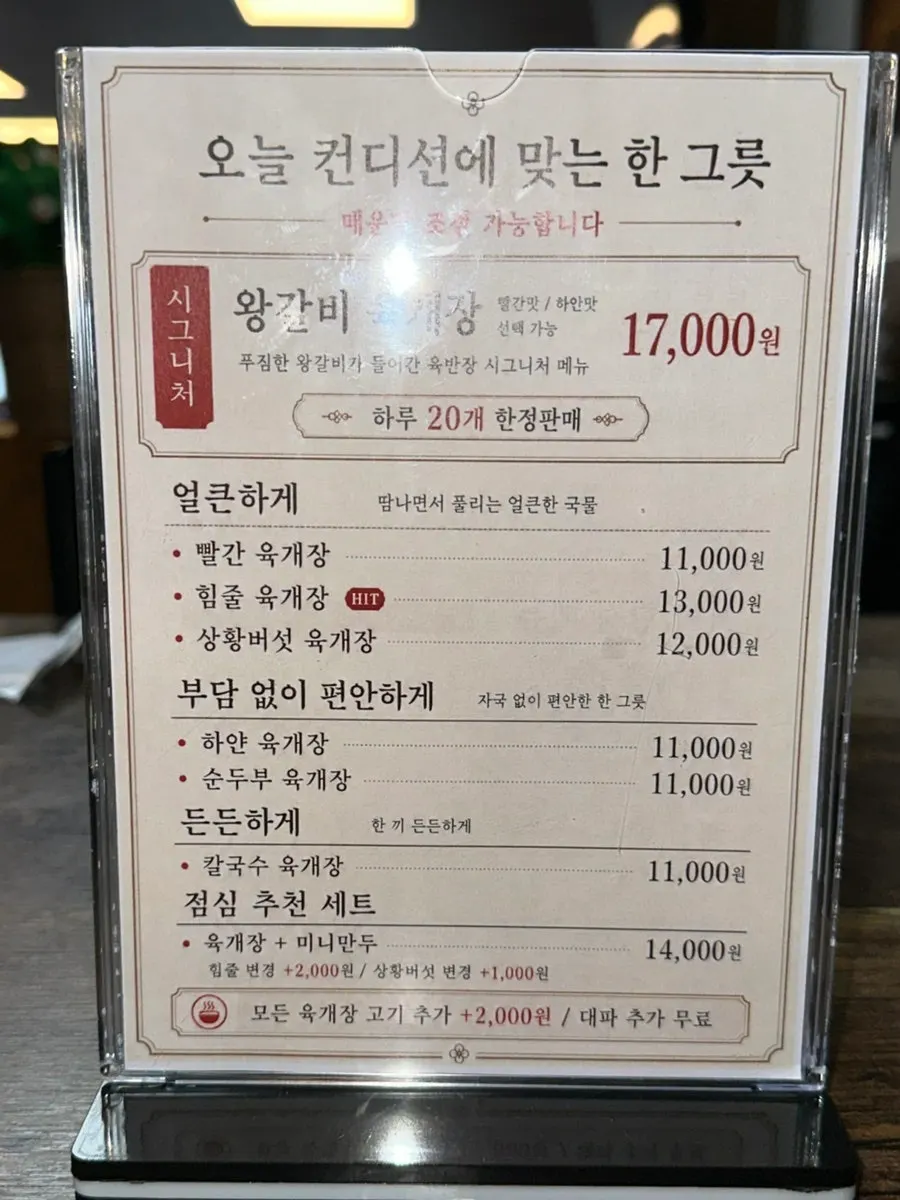 오늘 컨디션에 맞는 한 그릇
가능합니다
시그니처
왕갈비 육개장 빨간맛 / 하얀맛
선택 가능
17,000원
푸짐한 왕갈비가 들어간 육반장 시그니처 메뉴
하루 20개 한정판매
얼큰하게 땀나면서 풀리는 얼큰한 국물
• 빨간 육개장 11,000원
• 힘줄 육개장 HIT 13,000원
• 상황버섯 육개장 12,000원
부담 없이 편안하게 자국 없이 편안한 한 그릇
• 하얀 육개장 11,000원
• 순두부 육개장 11,000원
든든하게 한 끼 든든하게
• 칼국수 육개장 11,000원
점심 추천 세트
• 육개장 + 미니만두 14,000원
힘줄 변경 +2,000원 / 상황버섯 변경 +1,000원
모든 육개장 고기 추가 +2,000원 / 대파 추가 무료